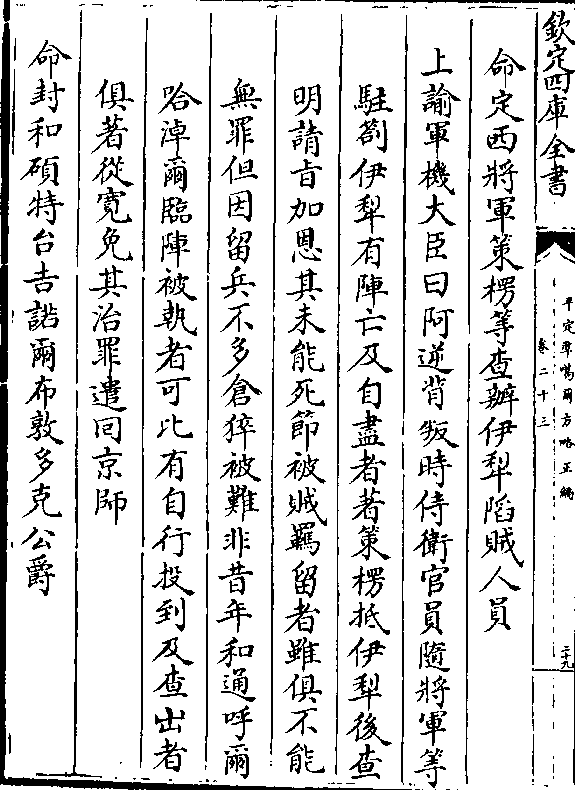 欽定四庫全書
平定凖噶爾方略正編
卷二十三
二十九
命定西將軍策楞等查辦伊犁陷賊人員
上諭軍機大臣曰阿逆背叛時侍衛官員隨將軍等
駐劄伊犁有陣亡及自盡者著策楞抵伊犁後查
明請旨加恩其未能死節被賊羈留者雖俱不能
無罪但因留兵不多倉猝被難非昔年和通呼爾
哈淖爾臨陣被執者可比有自行投到及查出者
俱著從寛免其治罪遣回京師
命封和碩特台吉諾爾布敦多克公爵